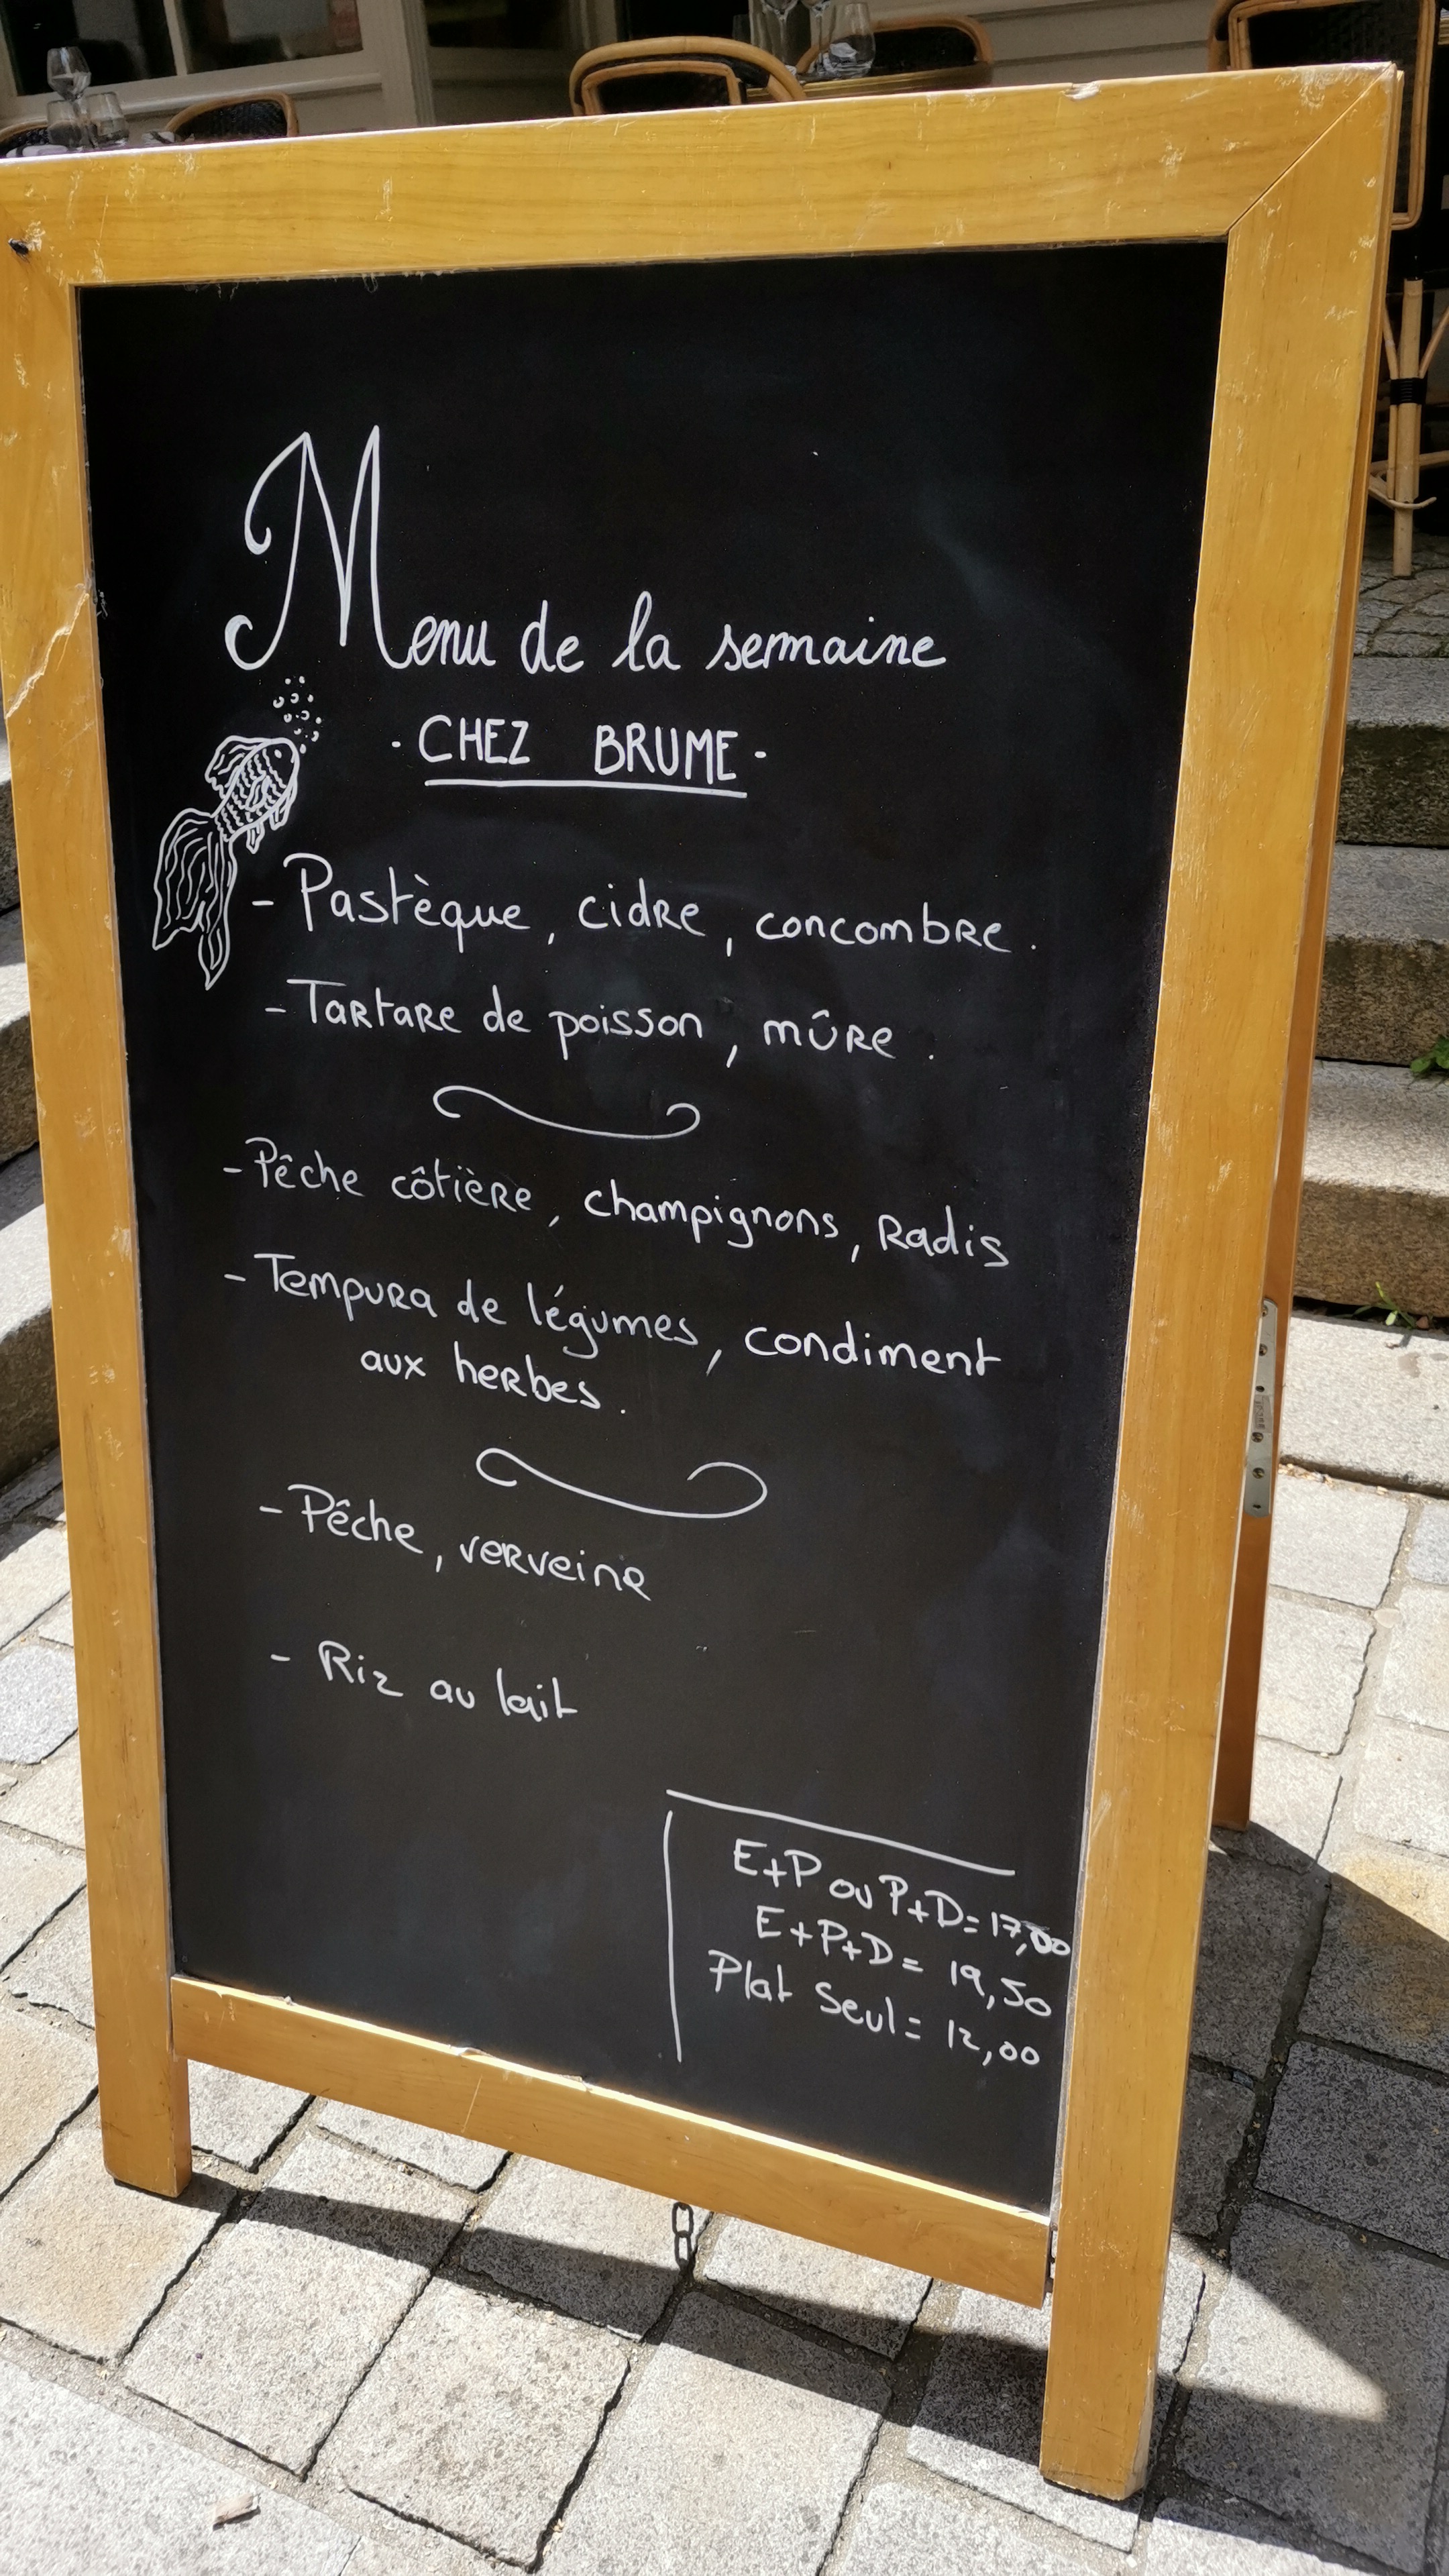 Menu de la semaine
· CHEZ BRUME ·
- Pastèque, cidre, concombre.
- Tartare de poisson, mûre.
- Pêche côtière, champignons, Radis
- Tempura de légumes, condiment
aux herbes.
- Pêche, verveine
- Riz au lait
E+P ou P+D= 17,00
E+P+D= 19,50
Plat Seul= 12,00